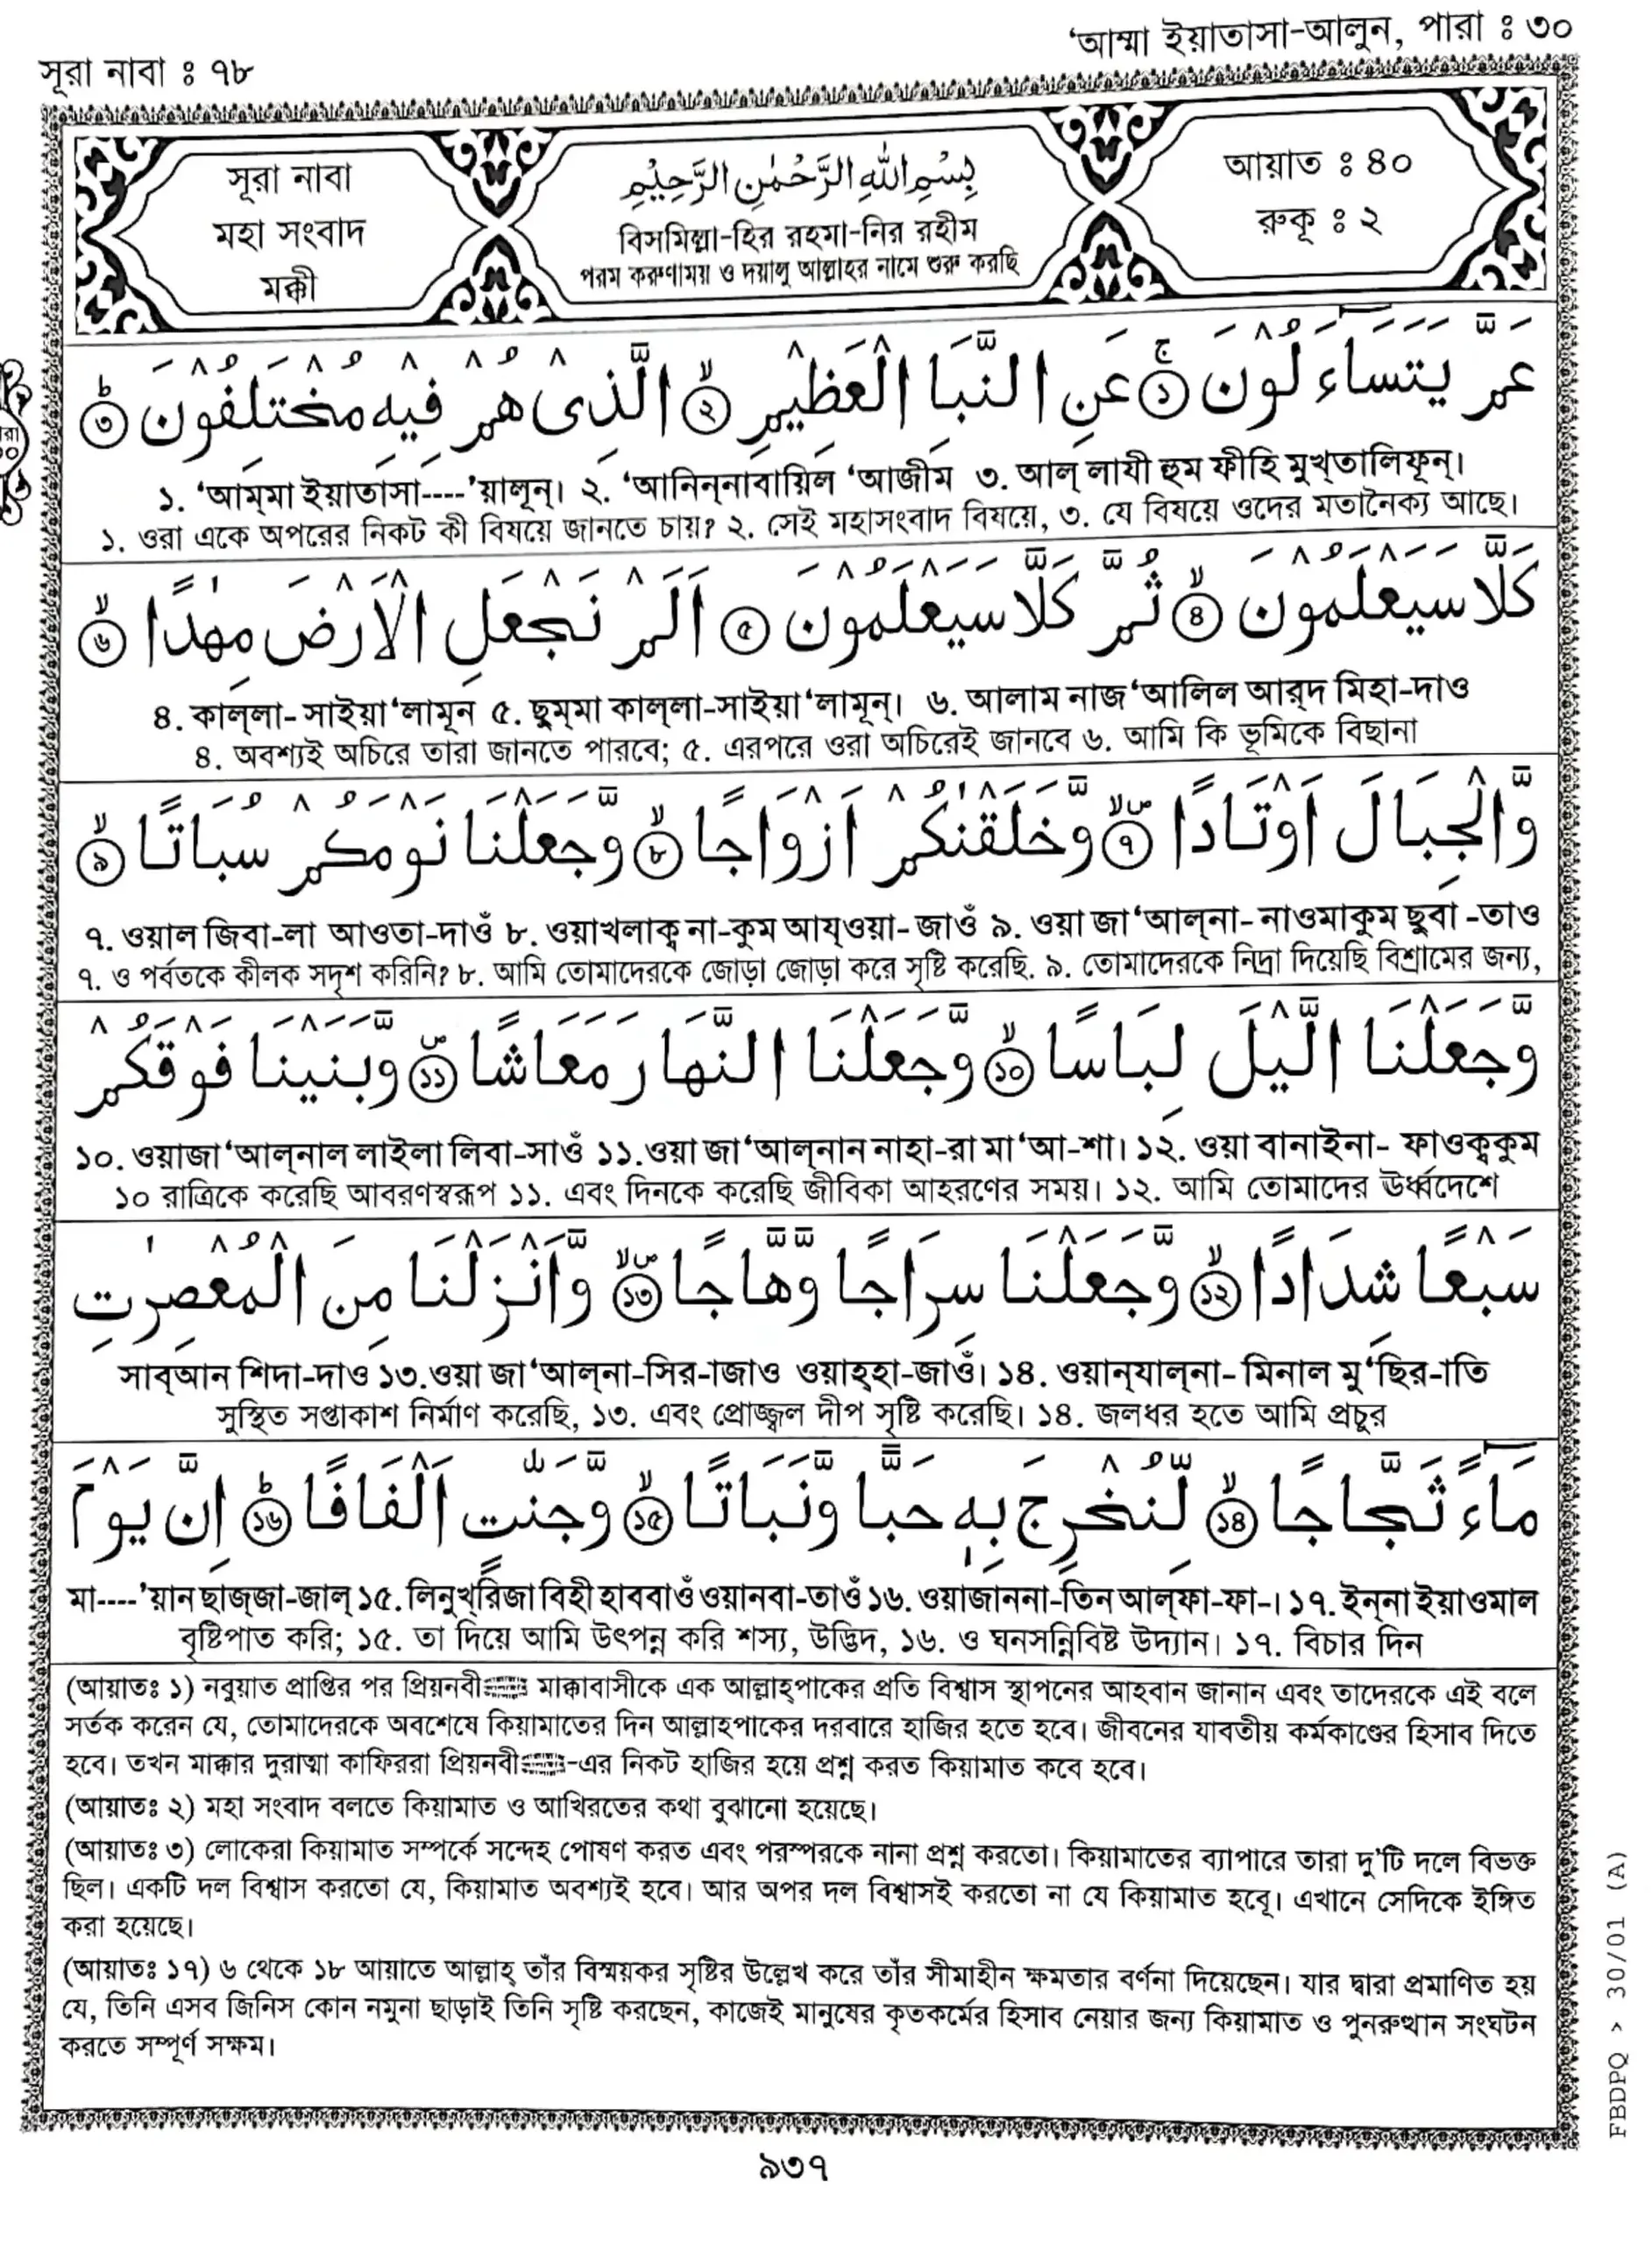 সূরা নাবা ঃ ৭৮
‘আম্মা ইয়াতাসা-আলুন, পারা ঃ ৩০
সূরা নাবা
মহা সংবাদ
মক্কী
بِسْمِ اللهِ الرَّحْمٰنِ الرَّحِيْمِ
বিসমিল্লা-হির রহমা-নির রহীম
পরম করুণাময় ও দয়ালু আল্লাহর নামে শুরু করছি
আয়াত ঃ ৪০
রুকূ ঃ ২
عَمَّ يَتَسَآءَلُوْنَ ۚ﴿১﴾ عَنِ النَّبَاِ الْعَظِيْمِ ۙ﴿২﴾ الَّذِىْ هُمْ فِيْهِ مُخْتَلِفُوْنَ ؕ﴿৩﴾
১. ‘আম্‌মা ইয়াতাসা----’য়ালূন্‌। ২. ‘আনিন্‌নাবায়িল ‘আজীম ৩. আল্‌ লাযী হুম ফীহি মুখ্‌তালিফূন্‌।
১. ওরা একে অপরের নিকট কী বিষয়ে জানতে চায়? ২. সেই মহাসংবাদ বিষয়ে, ৩. যে বিষয়ে ওদের মতানৈক্য আছে।
كَلَّا سَيَعْلَمُوْنَ ۙ﴿৪﴾ ثُمَّ كَلَّا سَيَعْلَمُوْنَ ﴿৫﴾ اَلَمْ نَجْعَلِ الْاَرْضَ مِهٰدًا ۙ﴿৬﴾
৪. কাল্‌লা- সাইয়া‘লামূন ৫. ছুম্‌মা কাল্‌লা-সাইয়া‘লামূন্‌। ৬. আলাম নাজ‘আলিল আর্‌দ মিহা-দাও
৪. অবশ্যই অচিরে তারা জানতে পারবে; ৫. এরপরে ওরা অচিরেই জানবে ৬. আমি কি ভূমিকে বিছানা
وَّالْجِبَالَ اَوْتَادًا ۪ۙ﴿৭﴾ وَّخَلَقْنٰكُمْ اَزْوَاجًا ۙ﴿৮﴾ وَّجَعَلْنَا نَوْمَكُمْ سُبَاتًا ۙ﴿৯﴾
৭. ওয়াল জিবা-লা আওতা-দাওঁ ৮. ওয়াখলাক্ব না-কুম আয্‌ওয়া- জাওঁ ৯. ওয়া জা‘আল্‌না- নাওমাকুম ছুবা -তাও
৭. ও পর্বতকে কীলক সদৃশ করিনি? ৮. আমি তোমাদেরকে জোড়া জোড়া করে সৃষ্টি করেছি. ৯. তোমাদেরকে নিদ্রা দিয়েছি বিশ্রামের জন্য,
وَّجَعَلْنَا الَّيْلَ لِبَاسًا ۙ﴿১০﴾ وَّجَعَلْنَا النَّهَارَ مَعَاشًا ۪﴿১১﴾ وَّبَنَيْنَا فَوْقَكُمْ
১০. ওয়াজা‘আল্‌নাল লাইলা লিবা-সাওঁ ১১.ওয়া জা‘আল্‌নান নাহা-রা মা‘আ-শা। ১২. ওয়া বানাইনা- ফাওক্বকুম
১০ রাত্রিকে করেছি আবরণস্বরূপ ১১. এবং দিনকে করেছি জীবিকা আহরণের সময়। ১২. আমি তোমাদের ঊর্ধ্বদেশে
سَبْعًا شِدَادًا ۙ﴿১২﴾ وَّجَعَلْنَا سِرَاجًا وَّهَّاجًا ۪ۙ﴿১৩﴾ وَّاَنْزَلْنَا مِنَ الْمُعْصِرٰتِ
সাব্‌আন শিদা-দাও ১৩.ওয়া জা‘আল্‌না-সির-াজাও ওয়াহ্‌হা-জাওঁ। ১৪. ওয়ান্‌যাল্‌না- মিনাল মু‘ছির-াতি
সুস্থিত সপ্তাকাশ নির্মাণ করেছি, ১৩. এবং প্রোজ্জ্বল দীপ সৃষ্টি করেছি। ১৪. জলধর হতে আমি প্রচুর
مَآءً ثَجَّاجًا ۙ﴿১৪﴾ لِّنُخْرِجَ بِهٖ حَبًّا وَّنَبَاتًا ۙ﴿১৫﴾ وَّجَنّٰتٍ اَلْفَافًا ؕ﴿১৬﴾ اِنَّ يَوْمَ
মা----’য়ান ছাজ্‌জা-জাল্‌ ১৫. লিনুখ্‌রিজা বিহী হাববাওঁ ওয়ানবা-তাওঁ ১৬. ওয়াজাননা-তিন আল্‌ফা-ফা-। ১৭. ইন্‌না ইয়াওমাল
বৃষ্টিপাত করি; ১৫. তা দিয়ে আমি উৎপন্ন করি শস্য, উদ্ভিদ, ১৬. ও ঘনসন্নিবিষ্ট উদ্যান। ১৭. বিচার দিন
(আয়াতঃ ১) নবুয়াত প্রাপ্তির পর প্রিয়নবী মাক্কাবাসীকে এক আল্লাহ্‌পাকের প্রতি বিশ্বাস স্থাপনের আহবান জানান এবং তাদেরকে এই বলে
সর্তক করেন যে, তোমাদেরকে অবশেষে কিয়ামাতের দিন আল্লাহপাকের দরবারে হাজির হতে হবে। জীবনের যাবতীয় কর্মকাণ্ডের হিসাব দিতে
হবে। তখন মাক্কার দুরাত্মা কাফিররা প্রিয়নবী-এর নিকট হাজির হয়ে প্রশ্ন করত কিয়ামাত কবে হবে।
(আয়াতঃ ২) মহা সংবাদ বলতে কিয়ামাত ও আখিরতের কথা বুঝানো হয়েছে।
(আয়াতঃ ৩) লোকেরা কিয়ামাত সম্পর্কে সন্দেহ পোষণ করত এবং পরস্পরকে নানা প্রশ্ন করতো। কিয়ামাতের ব্যাপারে তারা দু’টি দলে বিভক্ত
ছিল। একটি দল বিশ্বাস করতো যে, কিয়ামাত অবশ্যই হবে। আর অপর দল বিশ্বাসই করতো না যে কিয়ামাত হবেূ। এখানে সেদিকে ইঙ্গিত
করা হয়েছে।
(আয়াতঃ ১৭) ৬ থেকে ১৮ আয়াতে আল্লাহ্‌ তাঁর বিস্ময়কর সৃষ্টির উল্লেখ করে তাঁর সীমাহীন ক্ষমতার বর্ণনা দিয়েছেন। যার দ্বারা প্রমাণিত হয়
যে, তিনি এসব জিনিস কোন নমুনা ছাড়াই তিনি সৃষ্টি করছেন, কাজেই মানুষের কৃতকর্মের হিসাব নেয়ার জন্য কিয়ামাত ও পুনরুত্থান সংঘটন
করতে সম্পূর্ণ সক্ষম।
৯৩৭
FBDPQ > 30/01 (A)